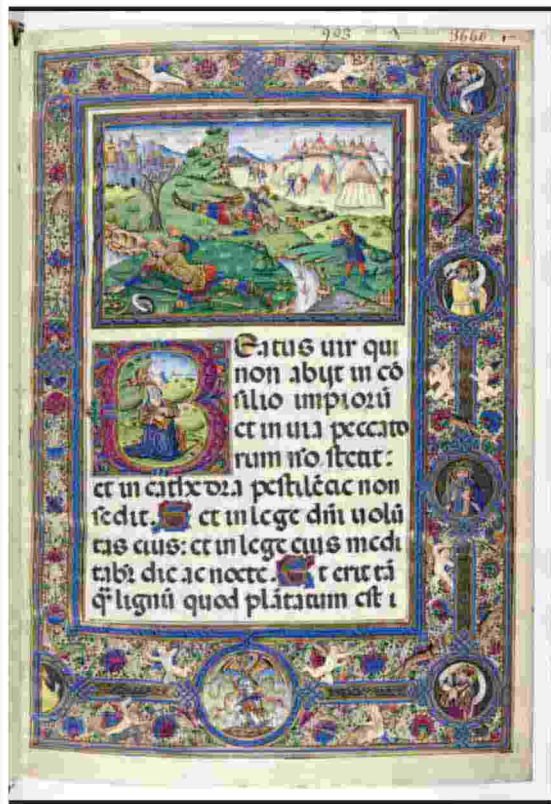 903
3660
Eatus uir qui
non abijt in cō
silio impiorū
et in uia peccato
rum nō stetit:
et in cathedra pestilēciae non
sedit. Et in lege dn̄i uolū
tas eius: et in lege eius medi
tabr̄ die ac nocte. Et erit tā
q̄ lignū quod plātatum est i